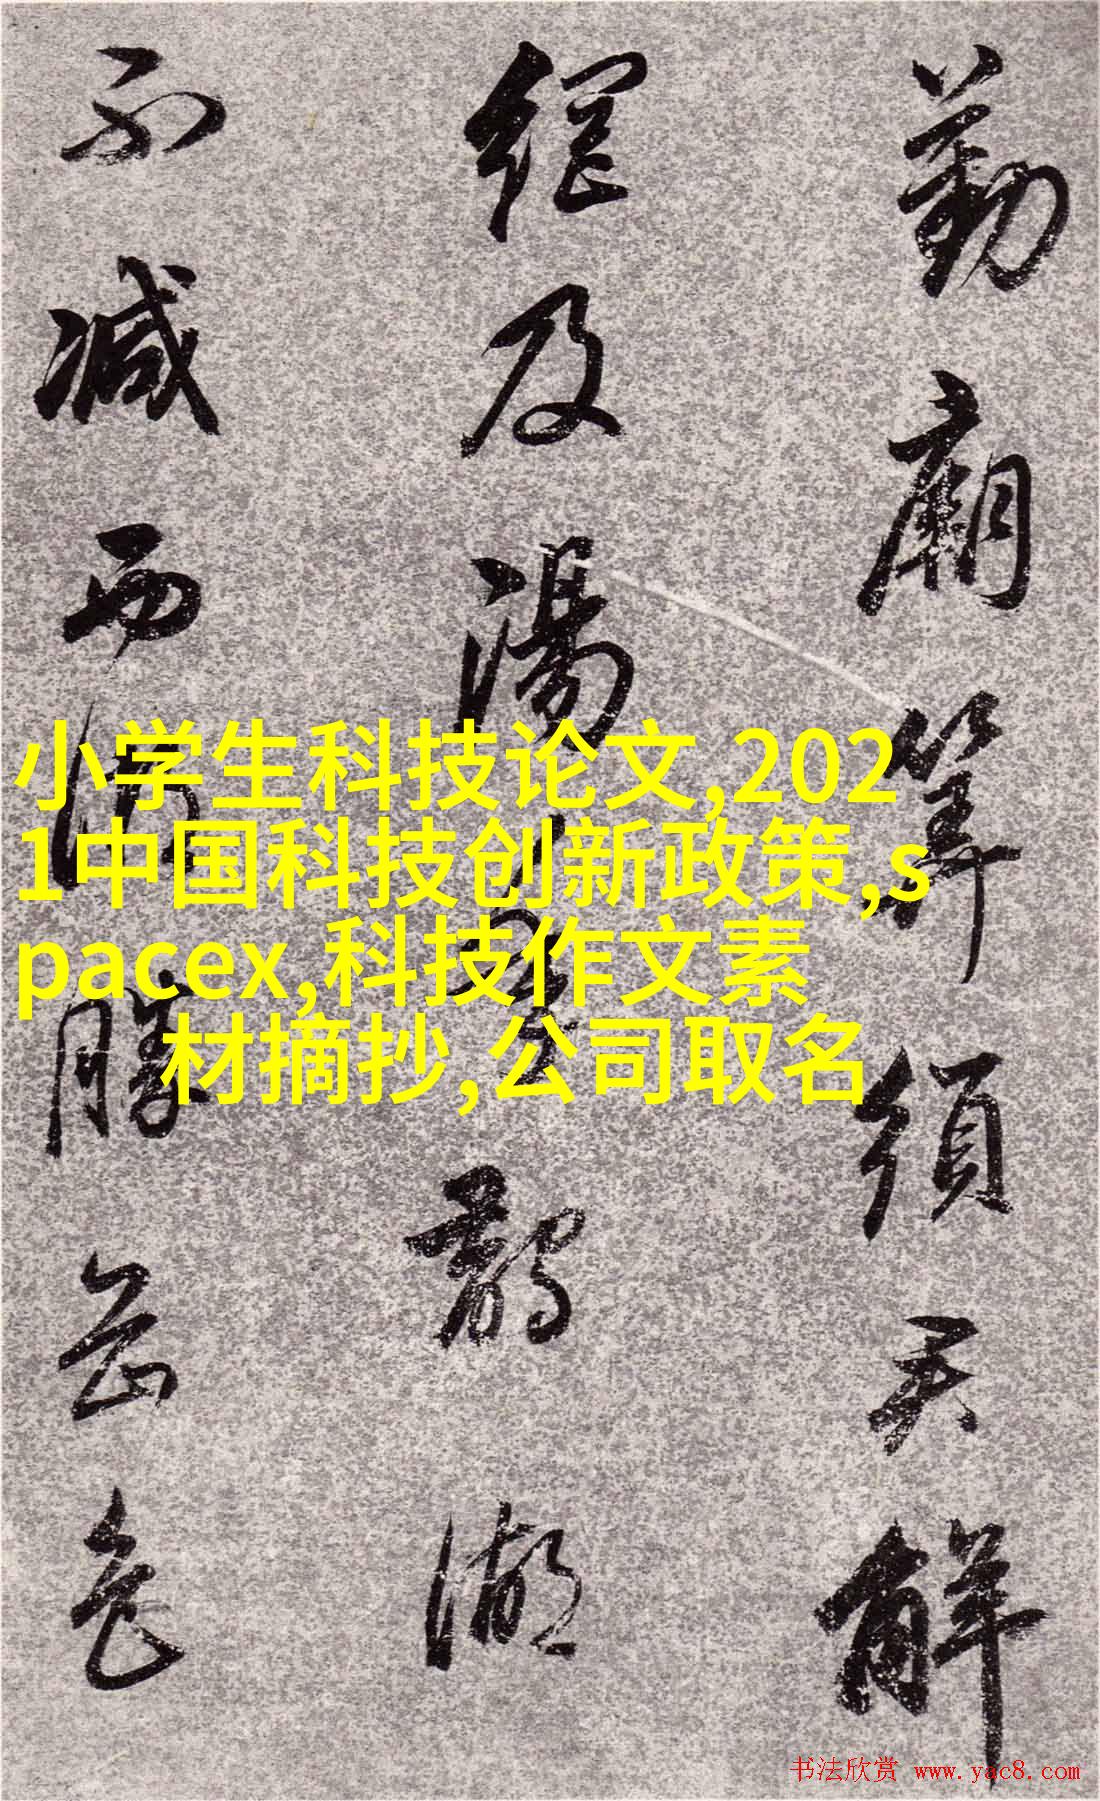 勤廟算須君解
網及湯
鵲湖
不減西湖勝畫色
小学生科技论文,202
1中国科技创新政策,s
pacex,科技作文素
材摘抄,公司取名
书法欣赏 www.yac8.com